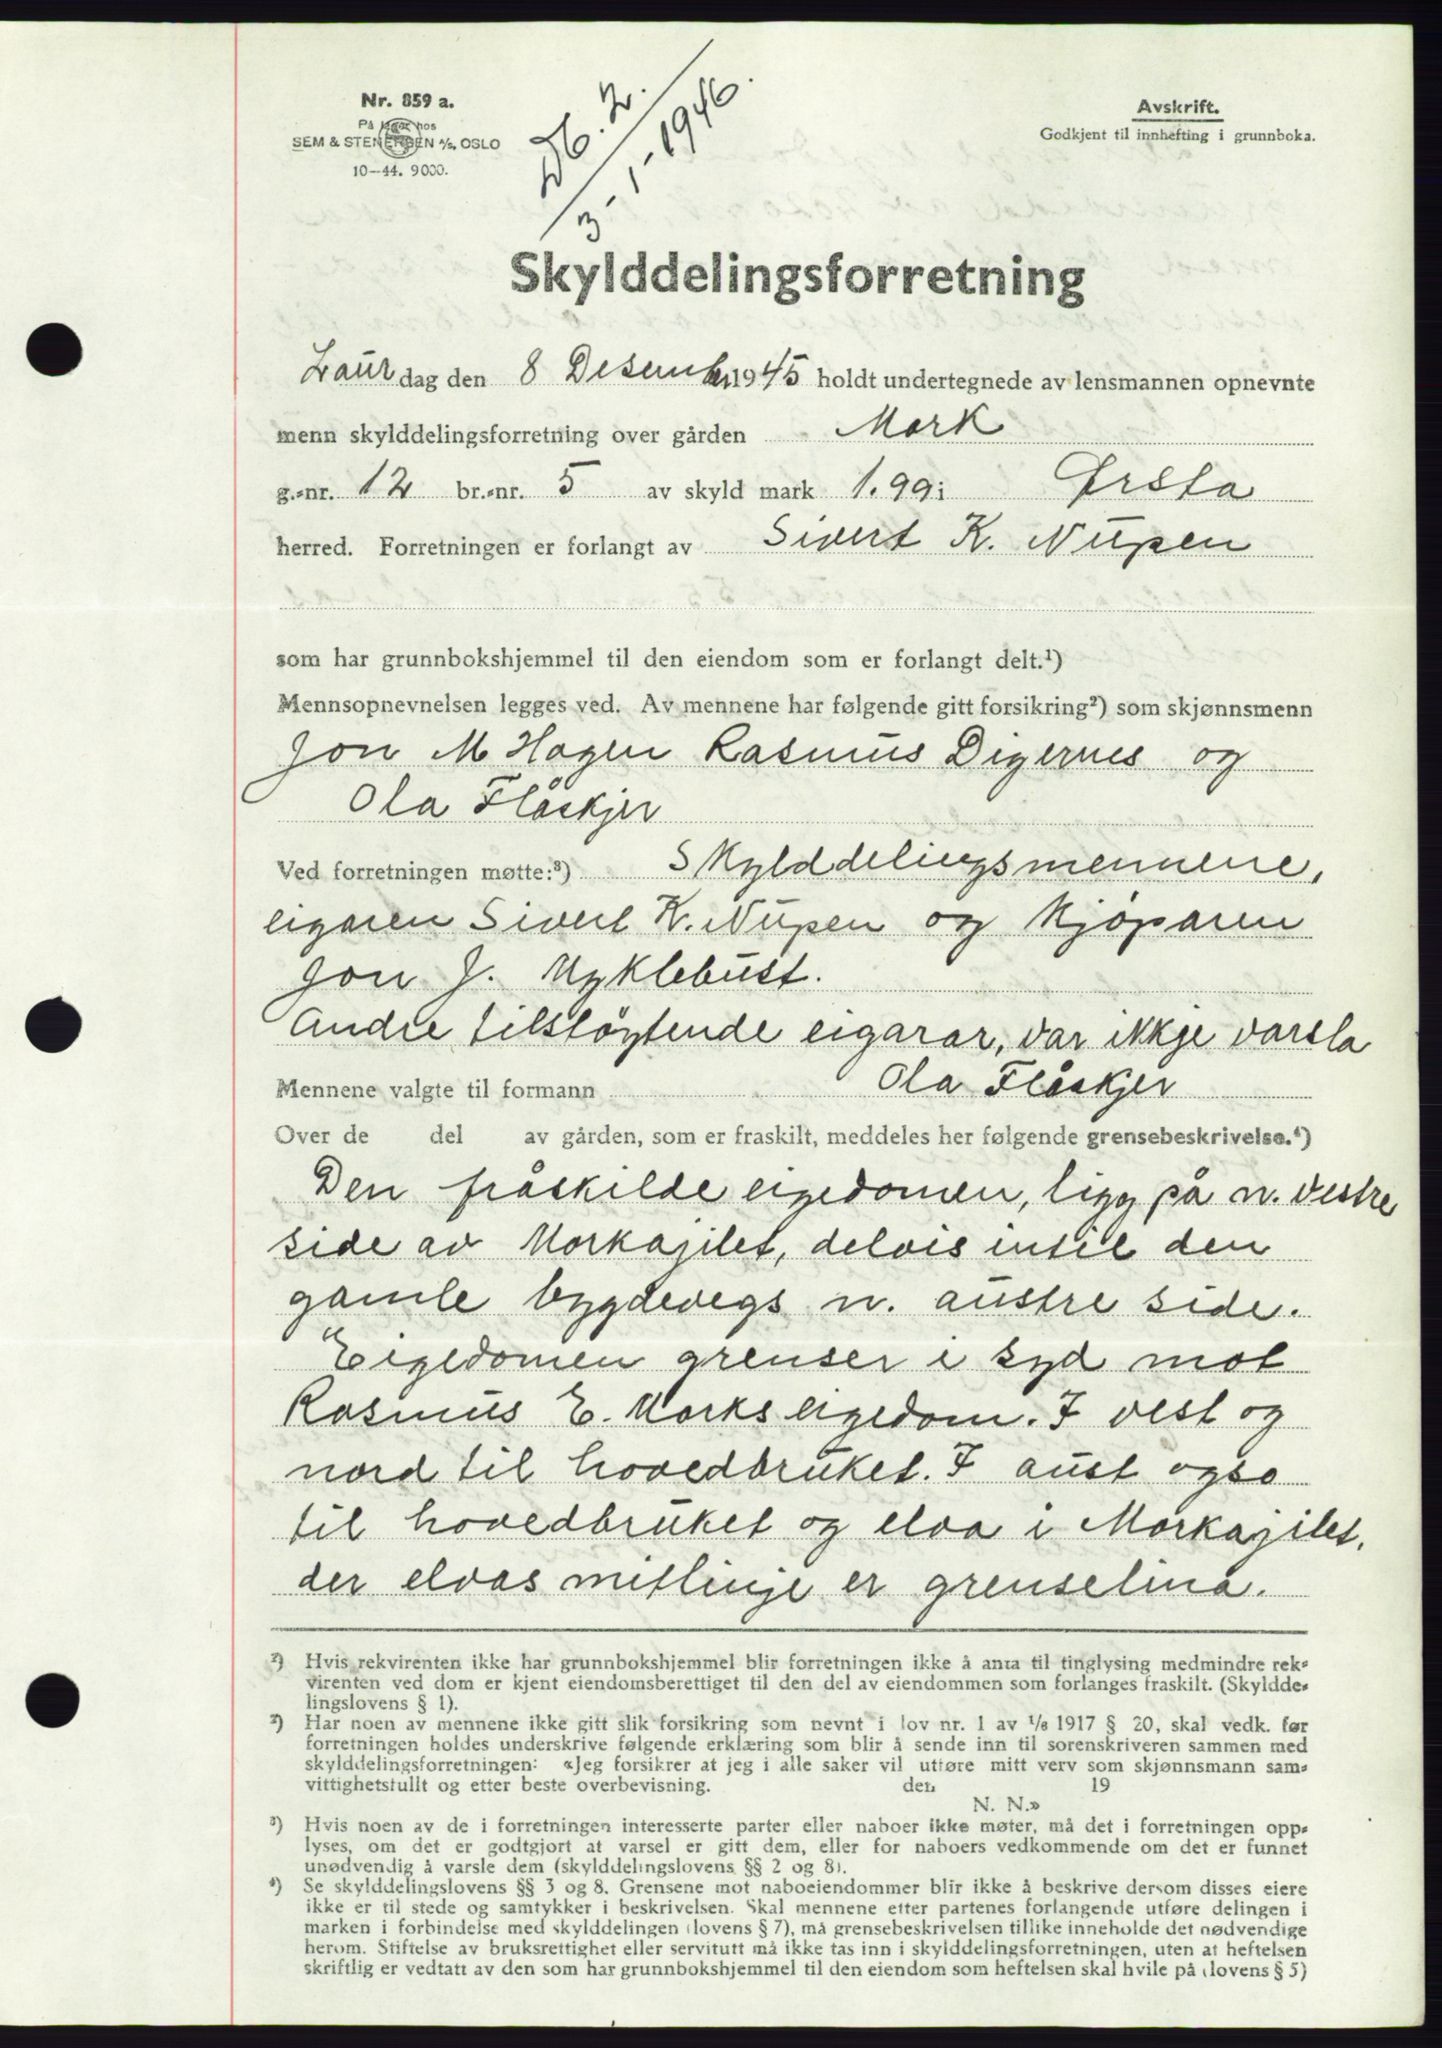 Nr. 859 a.
På lager hos
SEM & STENERSEN A/S, OSLO
10-44. 9000.
Db. 2.
3-1-1946.
Avskrift.
Godkjent til innhefting i grunnboka.
Skylddelingsforretning
Laur dag den 8 Desember 1945 holdt undertegnede av lensmannen opnevnte
menn skylddelingsforretning over gården Mork
g.-nr. 12 br.-nr. 5 av skyld mark 1.99 i Ørsta
herred. Forretningen er forlangt av Sivert K. Nupen
som har grunnbokshjemmel til den eiendom som er forlangt delt.¹)
Mennsopnevnelsen legges ved. Av mennene har følgende gitt forsikring²) som skjønnsmenn
Jon M Hagen Rasmus Digernes og
Ola Flåskjer
Ved forretningen møtte:³) Skylddelingsmennene,
eigaren Sivert K. Nupen og kjøparen
Jon J. Myklebust.
Andre tilstøytende eigarar, var ikkje varsla
Mennene valgte til formann Ola Flåskjer
Over de del av gården, som er fraskilt, meddeles her følgende grensebeskrivelse.⁴)
Den fråskilde eigedomen, ligg på n. vestre
side av Morkagilet, delvis intil den
gamle bygdevegs n. austre side.
Eigedomen grenser i syd mot
Rasmus E. Morks eigedom. I vest og
nord til hovedbruket. I aust ogso
til hovedbruket og elva i Morkagilet,
der elvas mitlinje er grenselina.
¹) Hvis rekvirenten ikke har grunnbokshjemmel blir forretningen ikke å anta til tinglysing medmindre rek-
virenten ved dom er kjent eiendomsberettiget til den del av eiendommen som forlanges fraskilt. (Skyldde-
lingslovens § 1).
²) Har noen av mennene ikke gitt slik forsikring som nevnt i lov nr. 1 av 1/8 1917 § 20, skal vedk. før
forretningen holdes underskrive følgende erklæring som blir å sende inn til sorenskriveren sammen med
skylddelingsforretningen: «Jeg forsikrer at jeg i alle saker vil utføre mitt verv som skjønnsmann sam-
vittighetsfullt og etter beste overbevisning. den 19
N. N.»
³) Hvis noen av de i forretningen interesserte parter eller naboer ikke møter, må det i forretningen opp-
lyses, om det er godtgjort at varsel er gitt dem, eller for naboers vedkommende om det er funnet
unødvendig å varsle dem (skylddelingslovens §§ 2 og 8).
⁴) Se skylddelingslovens §§ 3 og 8. Grensene mot naboeiendommer blir ikke å beskrive dersom disses eiere
ikke er til stede og samtykker i beskrivelsen. Skal mennene etter partenes forlangende utføre delingen i
marken i forbindelse med skylddelingen (lovens § 7), må grensebeskrivelsen tillike inneholde det nødvendige
herom. Stiftelse av bruksrettighet eller servitutt må ikke tas inn i skylddelingsforretningen, uten at heftelsen
skriftlig er vedtatt av den som har grunnbokshjemmel til den eiendom som heftelsen skal hvile på (lovens § 5)